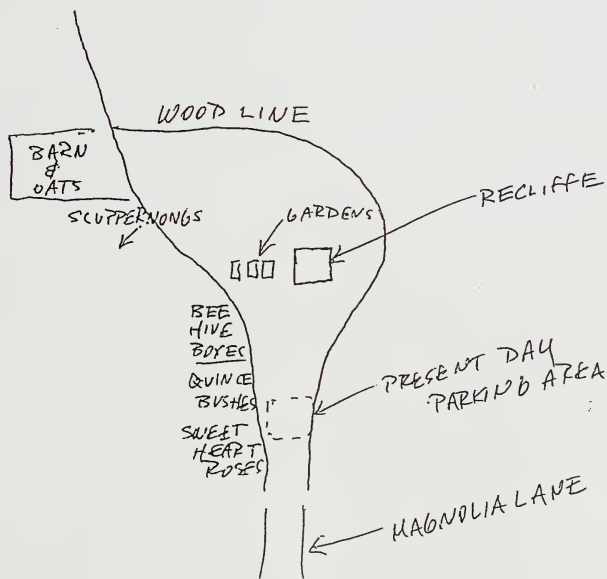 WOOD LINE
BARN
&
OATS
SCUPPERNONGS
GARDENS
RECLIFFE
BEE
HIVE
BOXES
QUINCE
BUSHES
SWEET
HEART
ROSES
PRESENT DAY
PARKING AREA
MAGNOLIA LANE